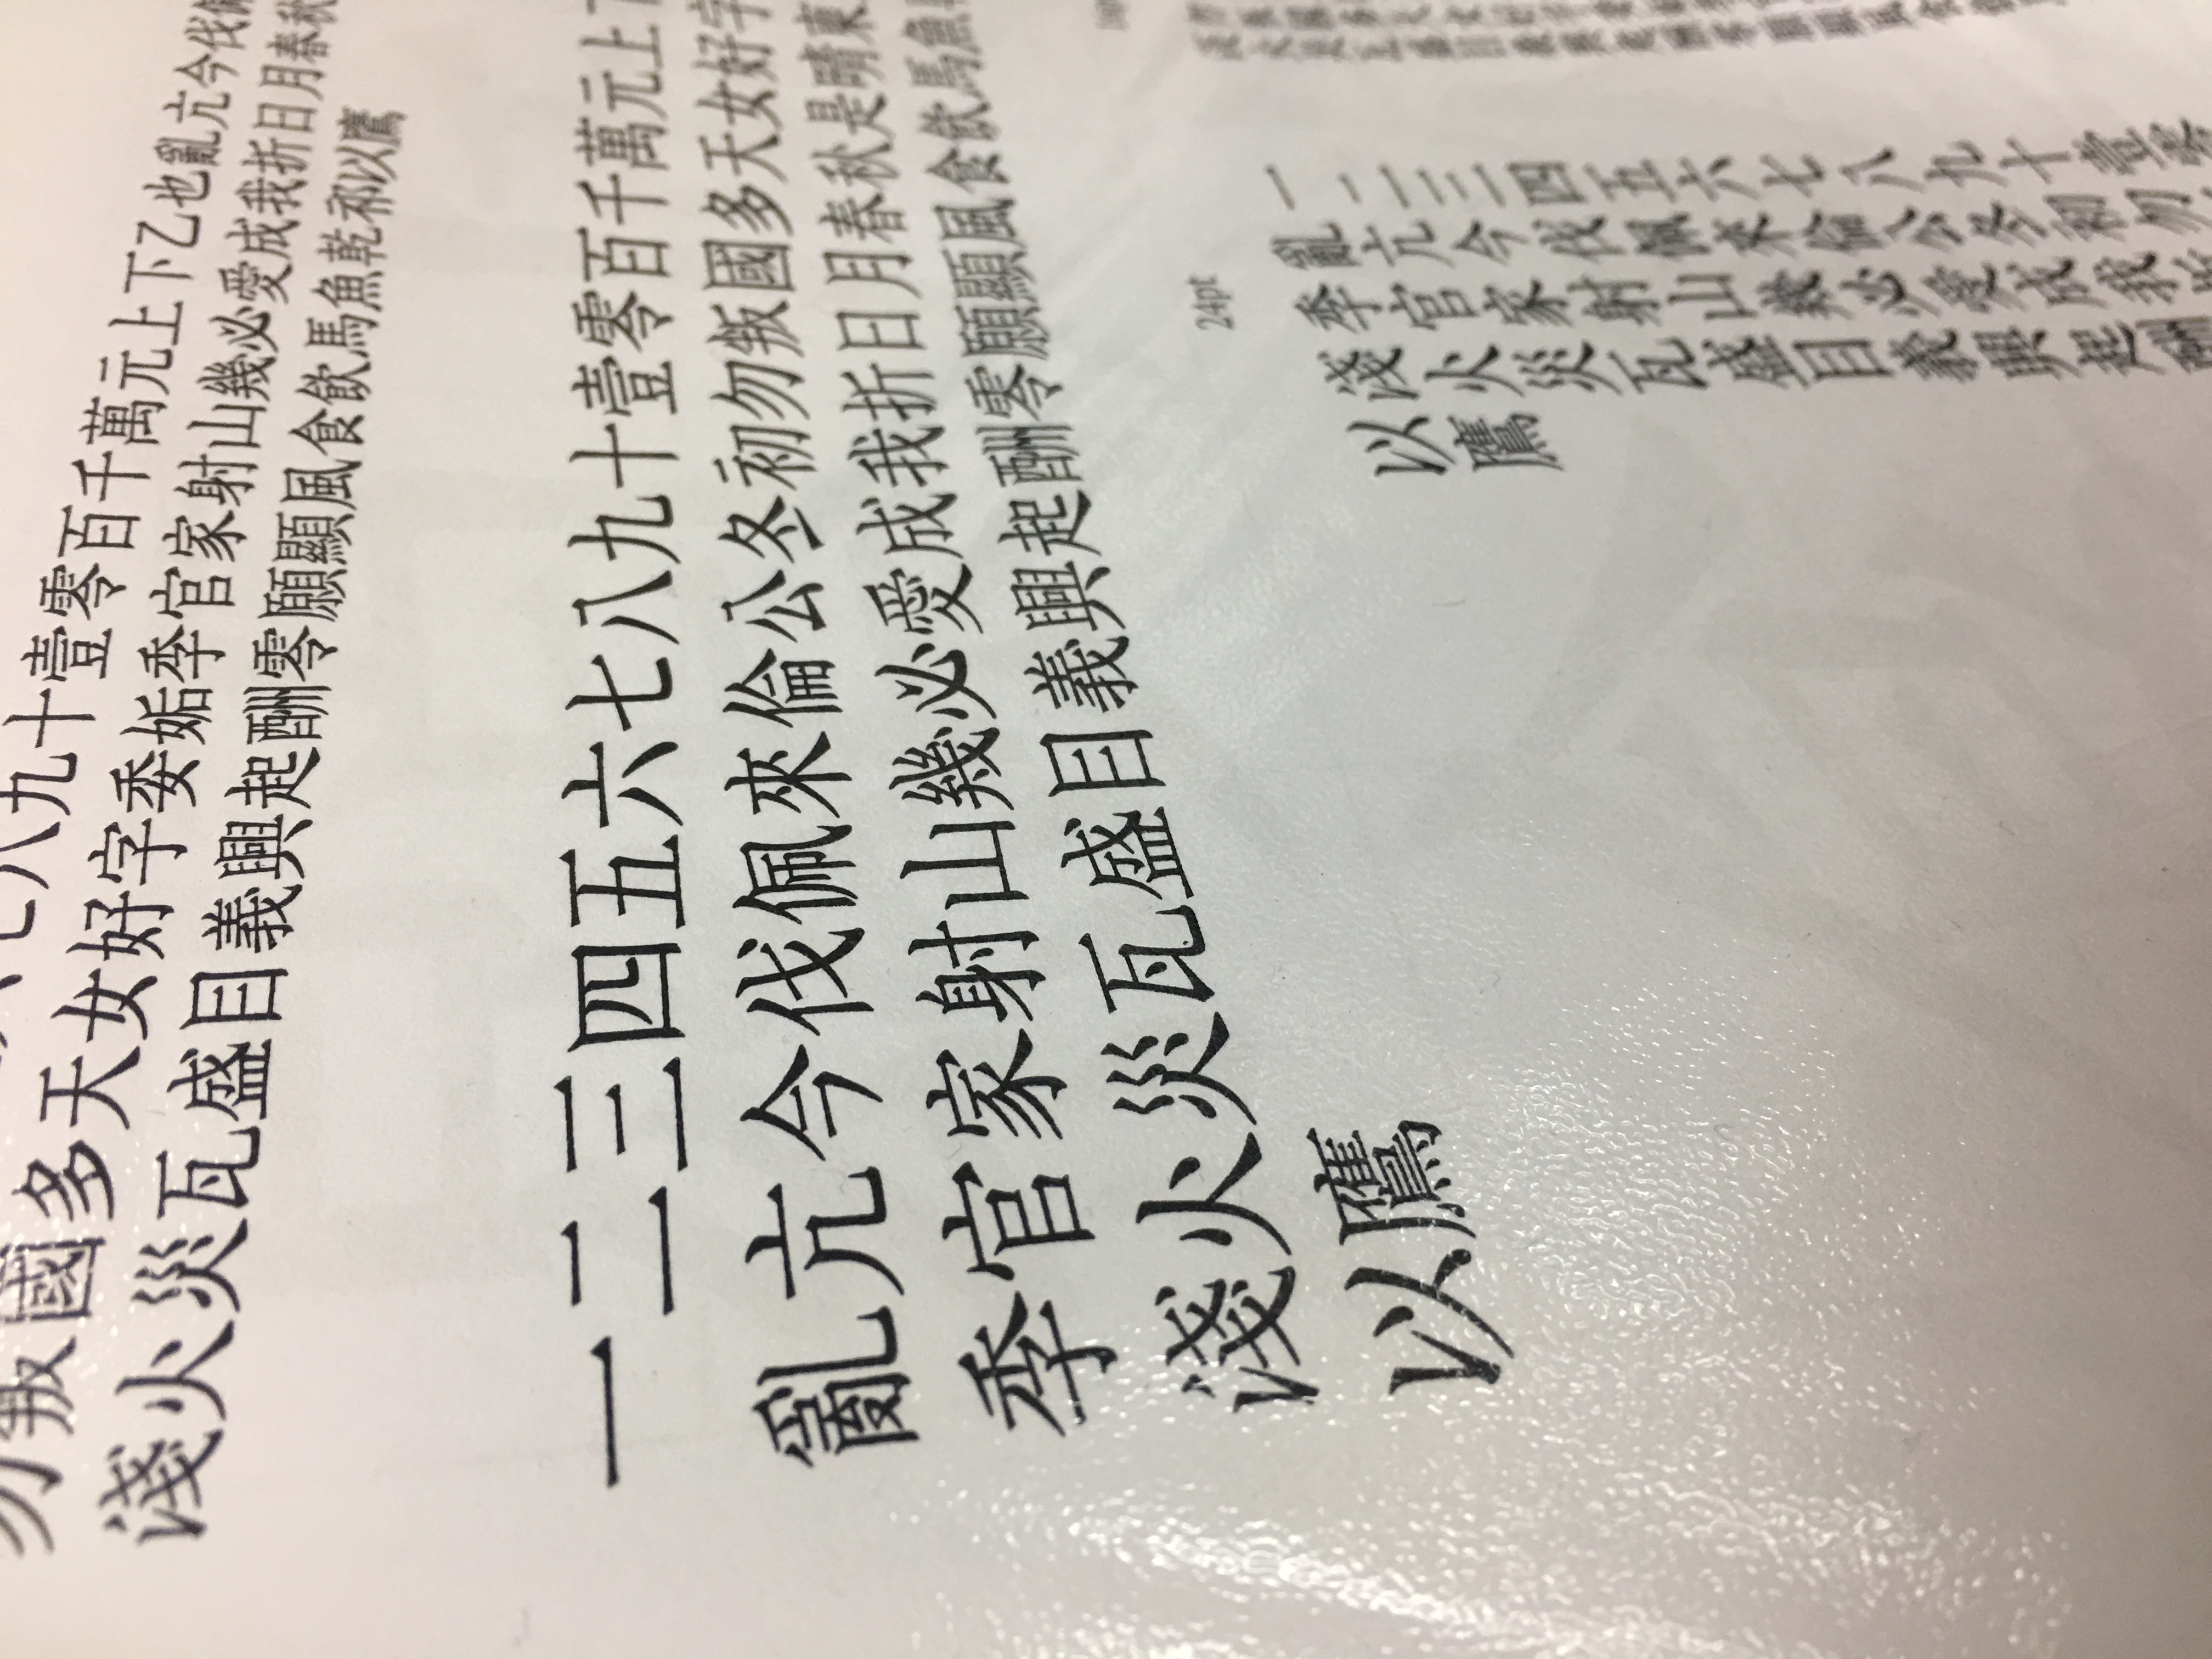 七八九十壹零百千萬元上下乙也亂亢今伐
勿叛國多天女好字委姤季官家射山幾必愛成我折日月春秋
淺火災瓦盛目義興起酬零願顯風食飲馬魚乾祁以鷹
一二三四五六七八九十壹零百千萬元上
亂亢今伐佩來倫公冬初勿叛國多天女好字
季官家射山幾必愛成我折日月春秋是晴東
淺火災瓦盛目義興起酬零願顯風食飲馬魚
以鷹
24pt
一二三四五六七八九十壹零
亂亢今伐佩來倫公冬初勿
季官家射山幾必愛成我
淺火災瓦盛目義興起酬
以鷹